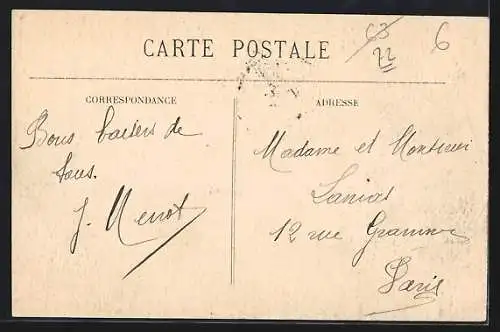 CARTE POSTALE
63
72
6
CORRESPONDANCE
Bons baisers de
tous.
J. Menot
ADRESSE
Madame et Monsieur
12 rue Gramme
Paris